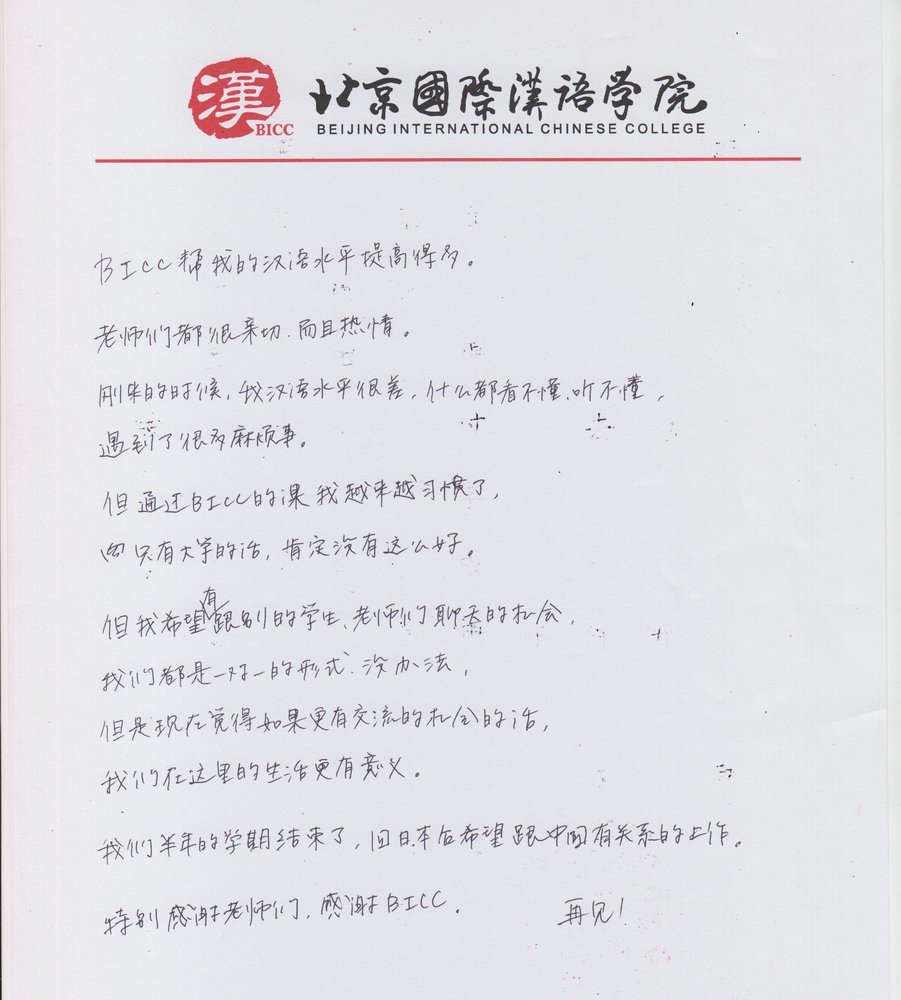 漢
BICC
北京國際漢语学院
BEIJING INTERNATIONAL CHINESE COLLEGE
BICC 帮我的汉语水平提高得多。
老师们都很亲切、而且热情。
刚来的时候，我汉语水平很差，什么都看不懂、听不懂，
遇到了很多麻烦事。
但通过BICC的课我越来越习惯了，
只有大学的话，肯定没有这么好。
但我希望有跟别的学生、老师们聊天的机会，
我们都是一对一的形式、没办法，
但是现在觉得如果更有交流的机会的话，
我们在这里的生活更有意义。
我们半年的学期结束了，回日本后希望跟中国有关系的工作。
特别感谢老师们，感谢BICC。
再见！